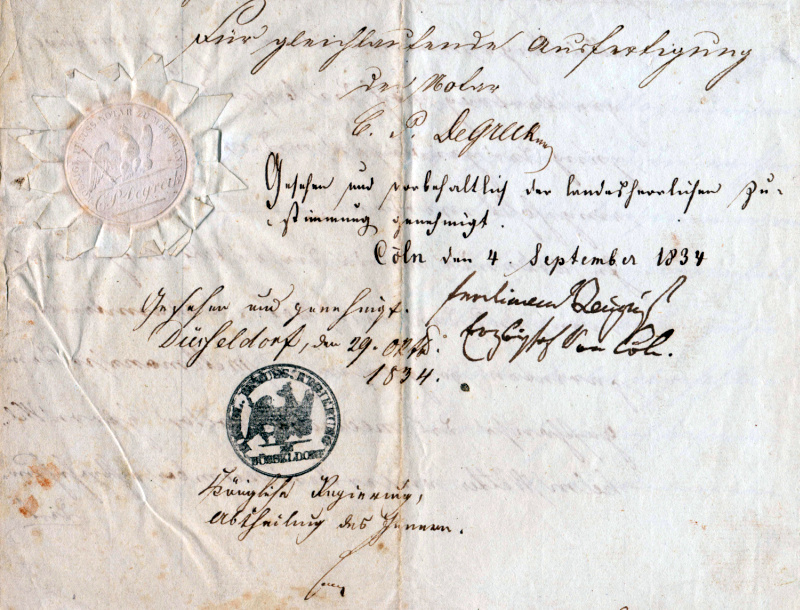 Für gleichlautende Ausfertigung
der Notar
C. P. DeGreck
Gesehen und vorbehaltlich der landesherrlichen Zu-
stimmung genehmigt.
Cöln den 4. September 1834
Ferdinand August
Erzbischof von Cöln.
Gesehen und genehmigt.
Düsseldorf, den 29. Oktb.
1834.
KÖNIGL. PREUSS. REGIERUNG
ZU
DÜSSELDORF
Königliche Regierung,
Abtheilung des Innern.